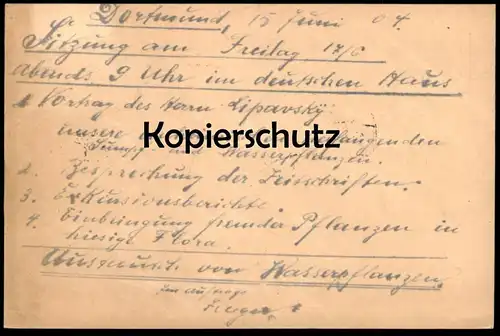 Dortmund, 15 Juni 04.
Sitzung am Freitag 17/6
Abends 9 Uhr im deutschen Haus
1 Vortrag des Herrn Lipavsky:
unsere
Kopierschutz
Sumpf und Wasserpflanzen.
2. Besprechung der Zeitschriften.
3. Exkursionsberichte.
4. Einbringung fremder Pflanzen in
hiesige Flora.
Austausch von Wasserpflanzen.
im Auftrage